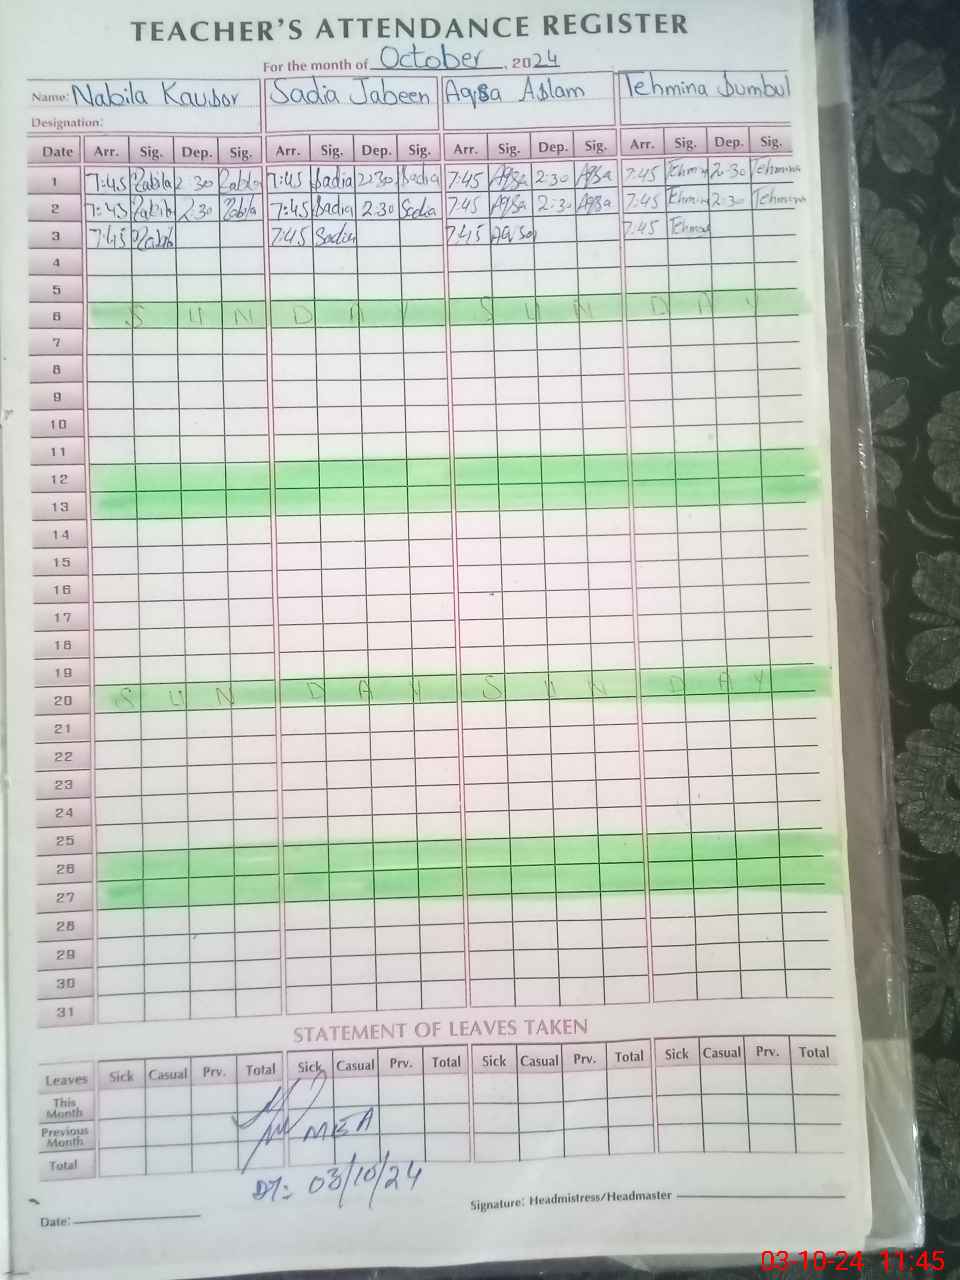 TEACHER'S ATTENDANCE REGISTER
For the month of October, 2024
Name: Nabila Kausor Sadia Jabeen Aqsa Aslam Tehmina Sumbul
Designation:
Date Arr. Sig. Dep. Sig. Arr. Sig. Dep. Sig. Arr. Sig. Dep. Sig. Arr. Sig. Dep. Sig.
1 7:45 Nabila 2:30 7:45 Sadia 2:30 Sadia 7:45 Aqsa 2:30 Aqsa 7:45 Tehmin 2:30 Tehmina
2 7:45 2:30 Nabila 7:45 Sadia 2:30 Sadia 7:45 Aqsa 2:30 Aqsa 7:45 Tehmin 2:30 Tehmina
3 7:45 7:45 Sadia 7:45 Aqsa 7:45
4
5
6 S U N D A Y S U N D A Y
7
8
9
10
11
12
13
14
15
16
17
18
19
20 S U N D A Y S U N D A Y
21
22
23
24
25
26
27
28
29
30
31
STATEMENT OF LEAVES TAKEN
Leaves Sick Casual Prv. Total Sick Casual Prv. Total Sick Casual Prv. Total Sick Casual Prv. Total
This Month
Previous Month
MEA
Total
DT: 03/10/24
Date: Signature: Headmistress/Headmaster
03-10-24 11:45